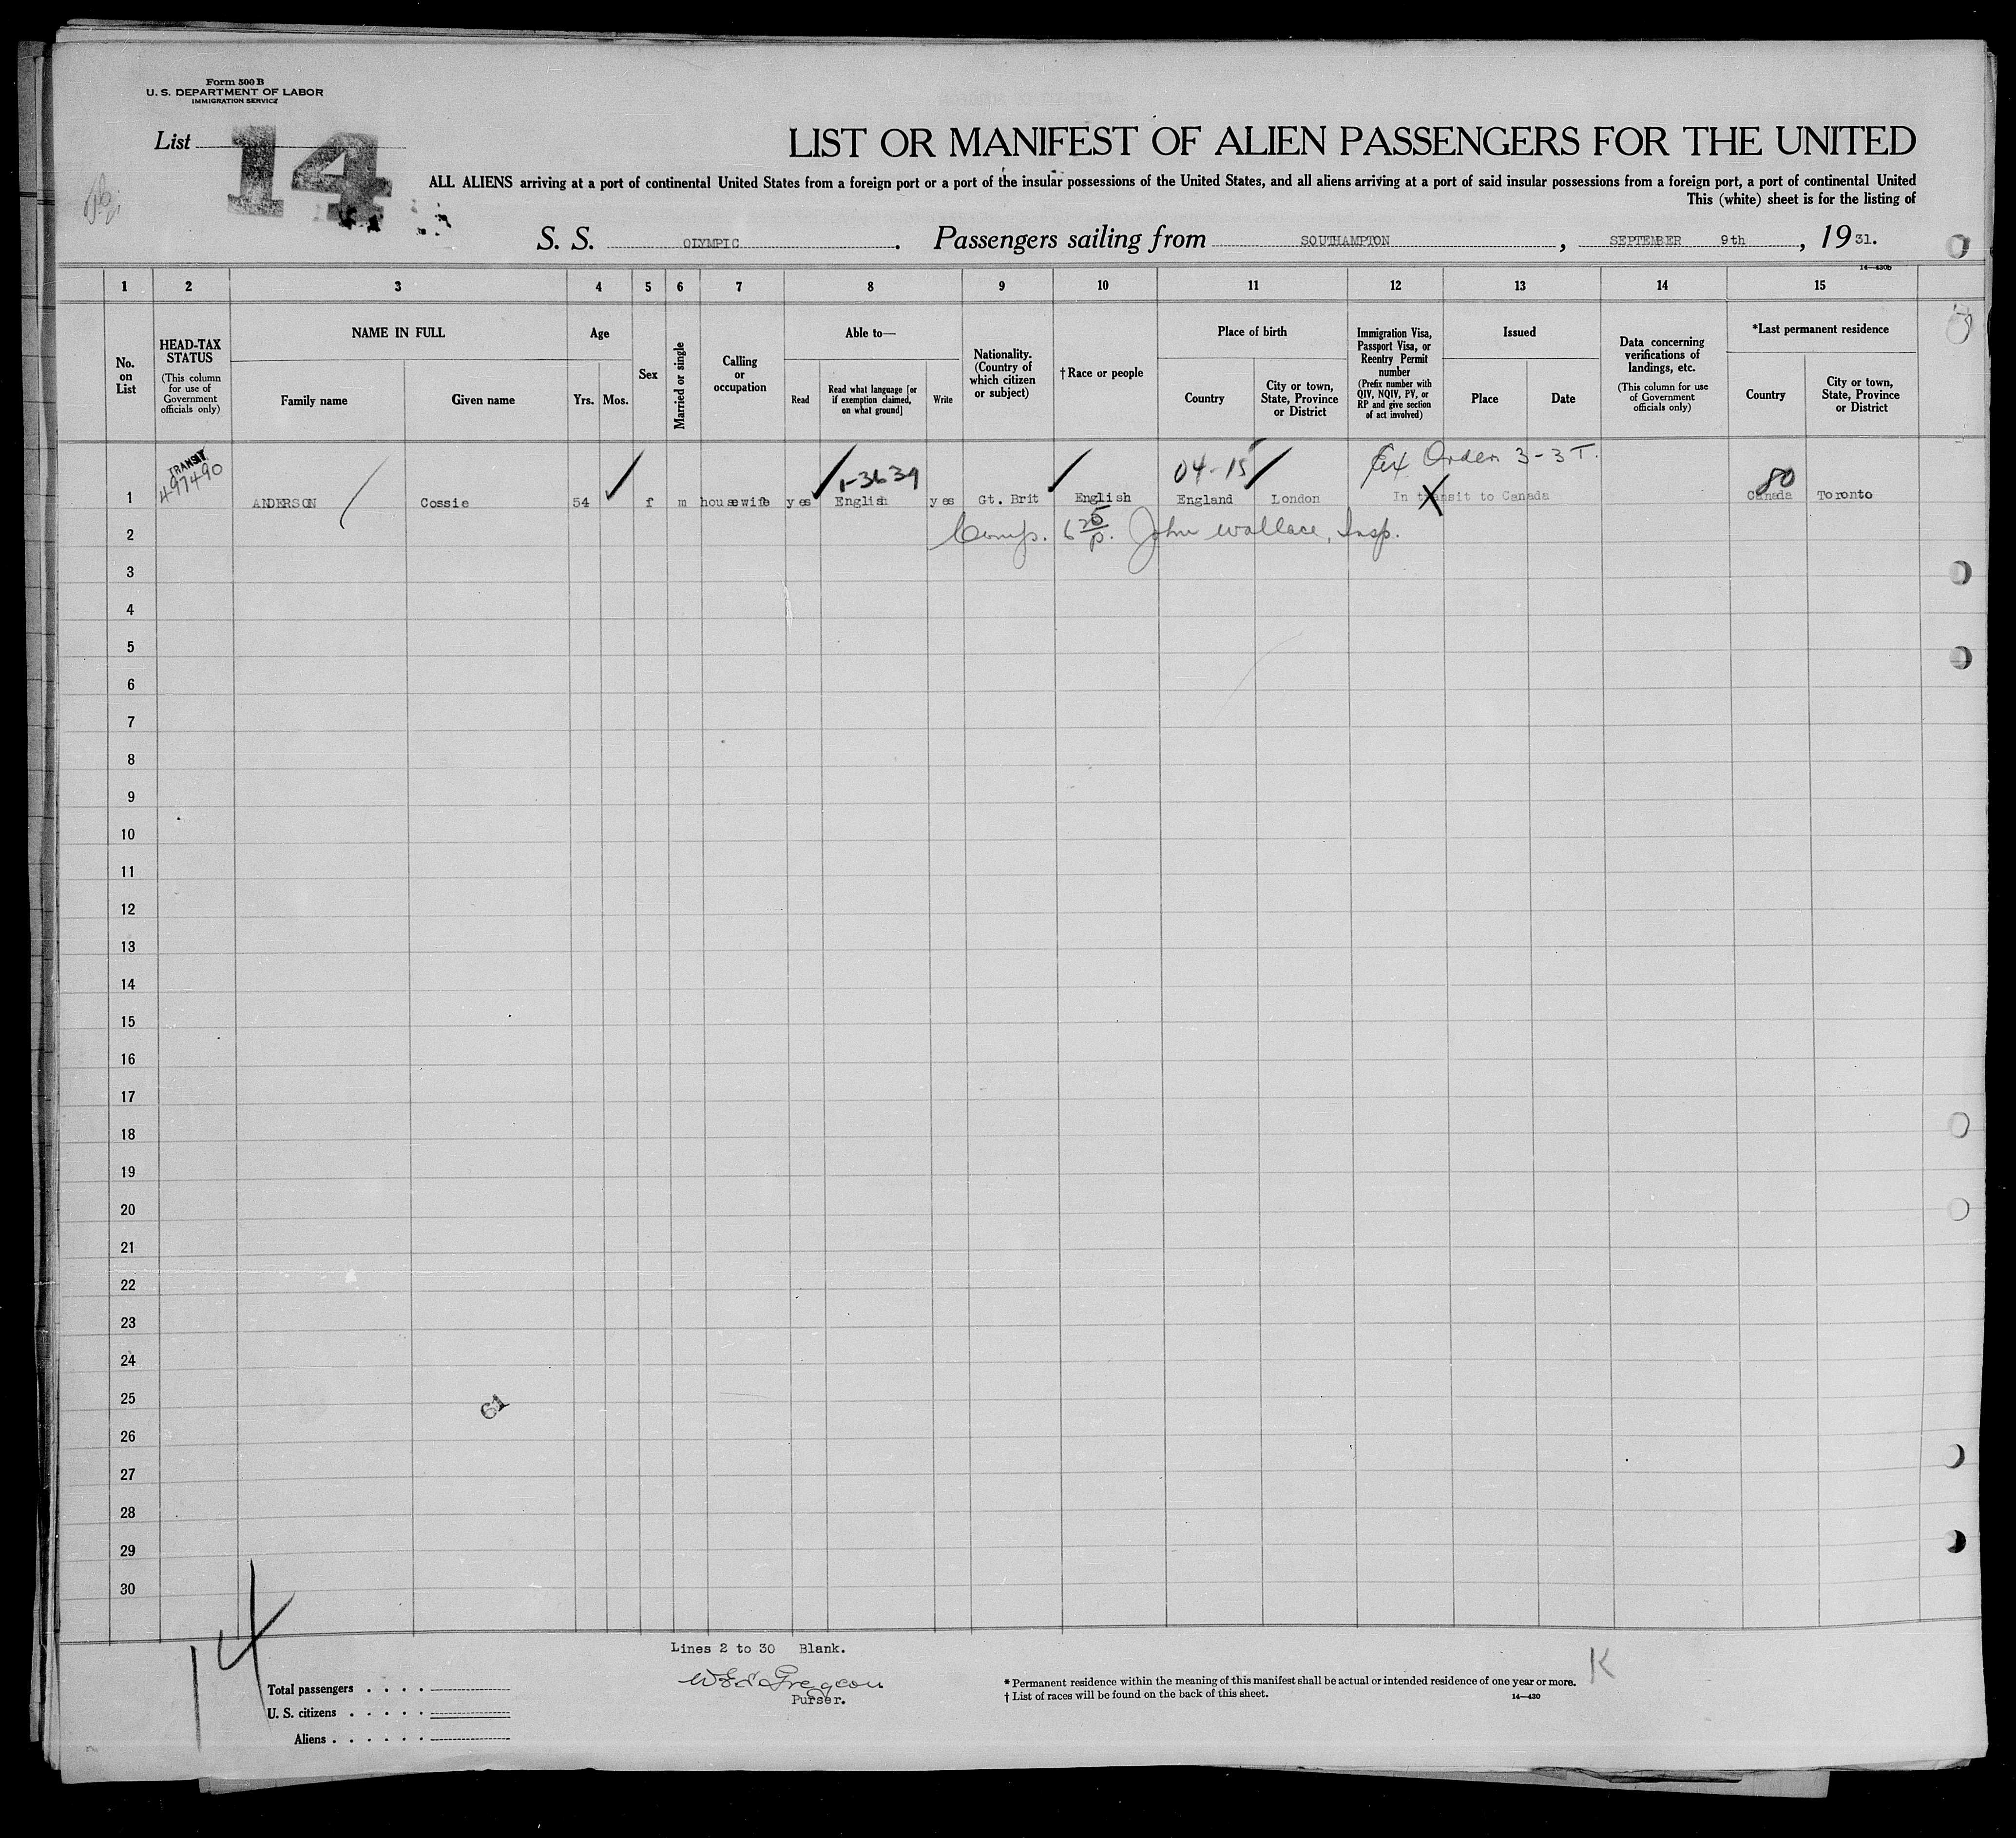 Form 500 B
U. S. DEPARTMENT OF LABOR
IMMIGRATION SERVICE
List 14
LIST OR MANIFEST OF ALIEN PASSENGERS FOR THE UNITED
ALL ALIENS arriving at a port of continental United States from a foreign port or a port of the insular possessions of the United States, and all aliens arriving at a port of said insular possessions from a foreign port, a port of continental United
This (white) sheet is for the listing of
S. S. OLYMPIC. Passengers sailing from SOUTHAMPTON, SEPTEMBER 9th, 1931.
14—430b
1 2 3 4 5 6 7 8 9 10 11 12 13 14 15
No. on List
HEAD-TAX STATUS (This column for use of Government officials only)
NAME IN FULL
Family name
Given name
Age
Yrs. Mos.
Sex
Married or single
Calling or occupation
Able to—
Read
Read what language [or if exemption claimed, on what ground]
Write
Nationality. (Country of which citizen or subject)
†Race or people
Place of birth
Country
City or town, State, Province or District
Immigration Visa, Passport Visa, or Reentry Permit number (Prefix number with QIV, NQIV, PV, or RP and give section of act involved)
Issued
Place
Date
Data concerning verifications of landings, etc. (This column for use of Government officials only)
*Last permanent residence
Country
City or town, State, Province or District
TRANSIT 497490
1-3639
04-15
Ex Order 3-3 T.
80
1 ANDERSON Cossie 54 f m housewife yes English yes Gt. Brit English England London In transit to Canada Canada Toronto
2 Comp. 6 25/p. John Wallace, Insp.
3
4
5
6
7
8
9
10
11
12
13
14
15
16
17
18
19
20
21
22
23
24
25
61
26
27
28
29
30
14
Lines 2 to 30 Blank.
Purser.
K
Total passengers . . . .
U. S. citizens . . . . .
Aliens . . . . . .
* Permanent residence within the meaning of this manifest shall be actual or intended residence of one year or more.
† List of races will be found on the back of this sheet.
14—430